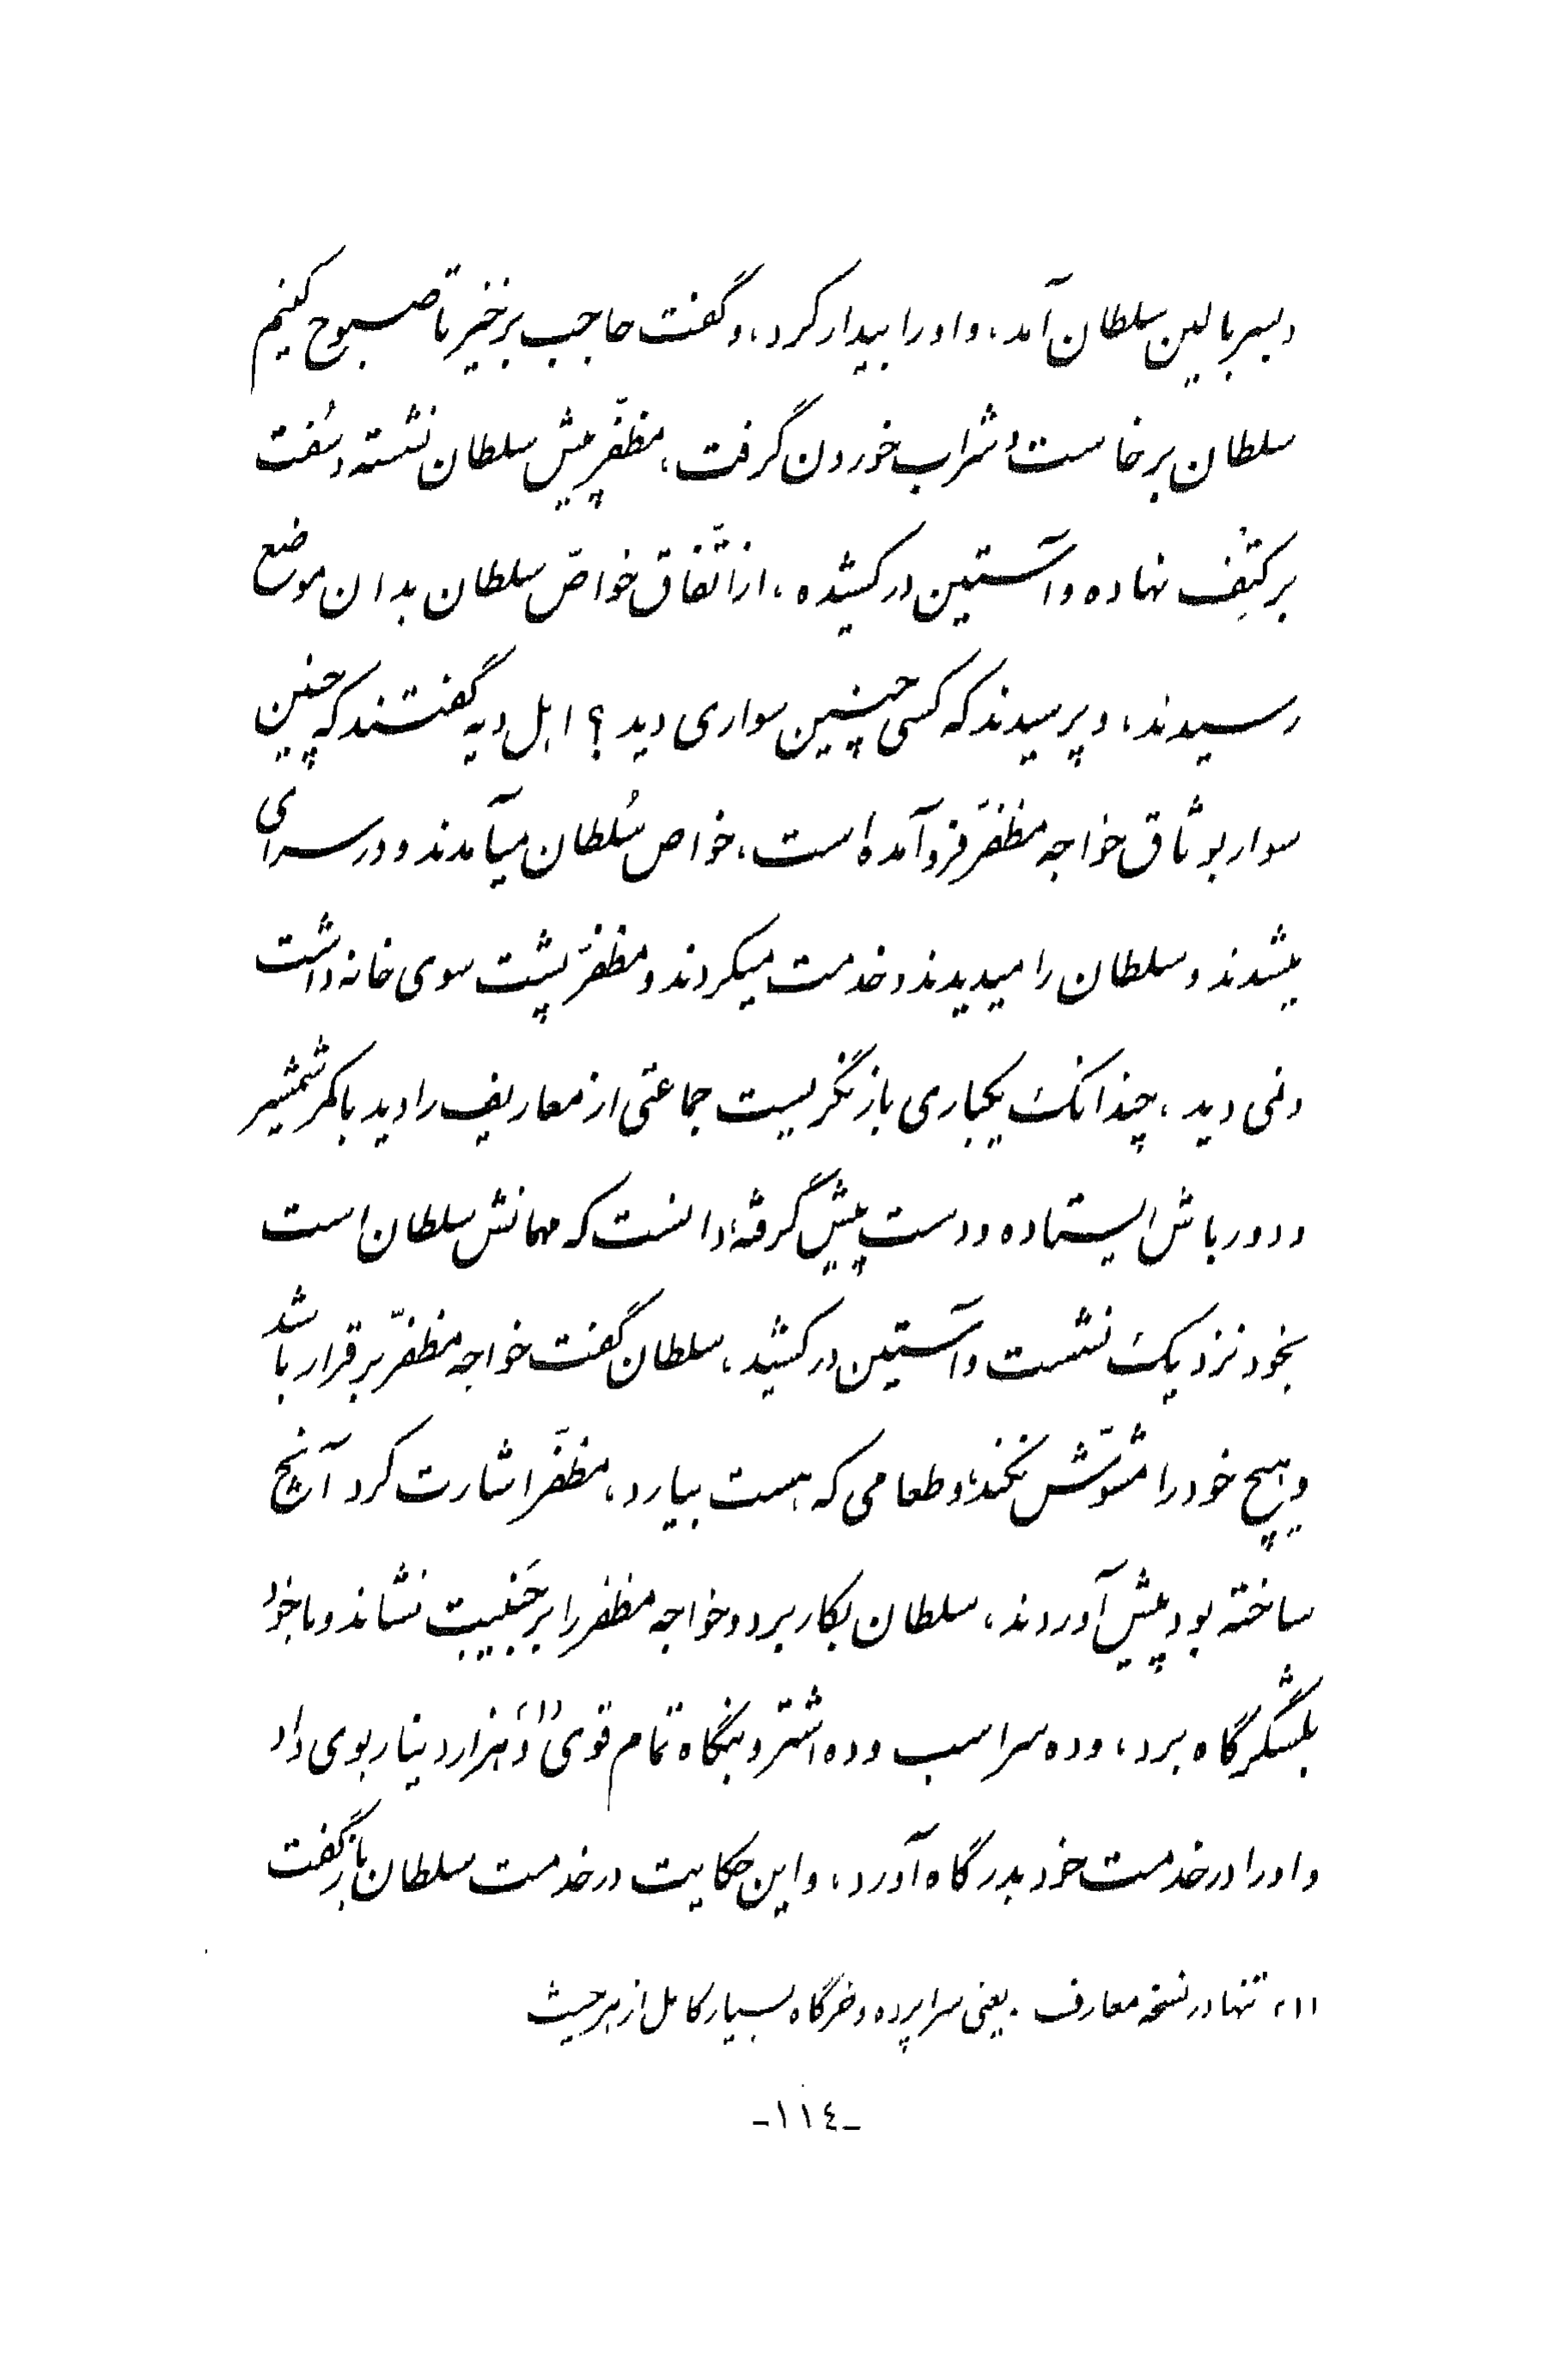 وبسر بالین سلطان آمد، و او را بیدار کرد، و گفت حاجب برخیز تا صبوح کنیم
سلطان برخاست و شراب خوردن گرفت، مظفّر پیش سلطان نشسته و سُفت
بر کتِف نهاده و آستین در کشیده، از اتّفاق خواصّ سلطان بدان موضع
رسیدند، و پرسیدند که کسی چنین سواری دید؟ اهل دیه گفتند که چنین
سوار بوثاق خواجه مظفّر فرو آمده است، خواص سُلطان میآمدند و در سرای
میشدند و سلطان را میدیدند و خدمت میکردند و مظفّر پشت سوی خانه داشت
و نمی دید، چندانک یکباری باز نگریست جماعتی از معاریف را دید با کمر شمشیر
و دورباش ایستاده و دست پیش گرفته، دانست که مهمانش سلطان است
بخود نزدیک نشست و آستین در کشید، سلطان گفت خواجه مظفّر برقرار باشد
و هیچ خود را مشوّش نکند، و طعامی که هست بیارد، مظفّر اشارت کرد آنچ
ساخته بود پیش آوردند، سلطان بکار برد و خواجه مظفر را بر جَنیبت نشاند و با خود
بلشگرگاه برد، و ده سر اسب و ده اشتر و بنگاه تمام قوی «۱» و هزار دینار بوی داد
و او را در خدمت خود بدرگاه آورد، و این حکایت در خدمت سلطان باز گفت
«۱» تنها در نسخه معارف . یعنی سراپرده و خرگاه بسیار کامل از هر حیث
-۱۱٤-